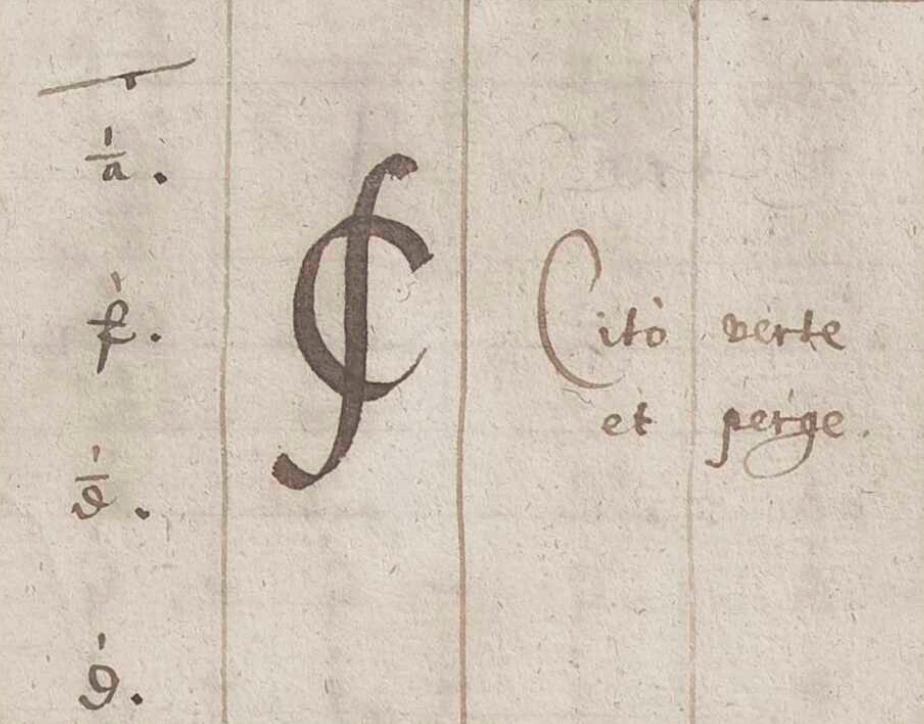 a.
f.
d.
d.
Citò verte
et perge.